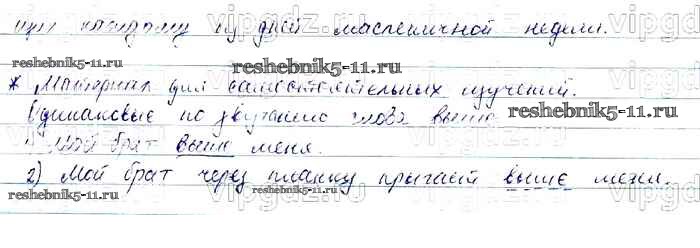 при каждому из дней масленичной недели.
* Материал для самостоятельных изучений.
Одинаковые по звучанию слова выше
1) Мой брат выше меня.
2) Мой брат через планку прыгает выше меня.
vipgdz.ru
reshebnik5-11.ru
reshebnik5-11.ru
reshebnik5-11.ru
reshebnik5-11.ru